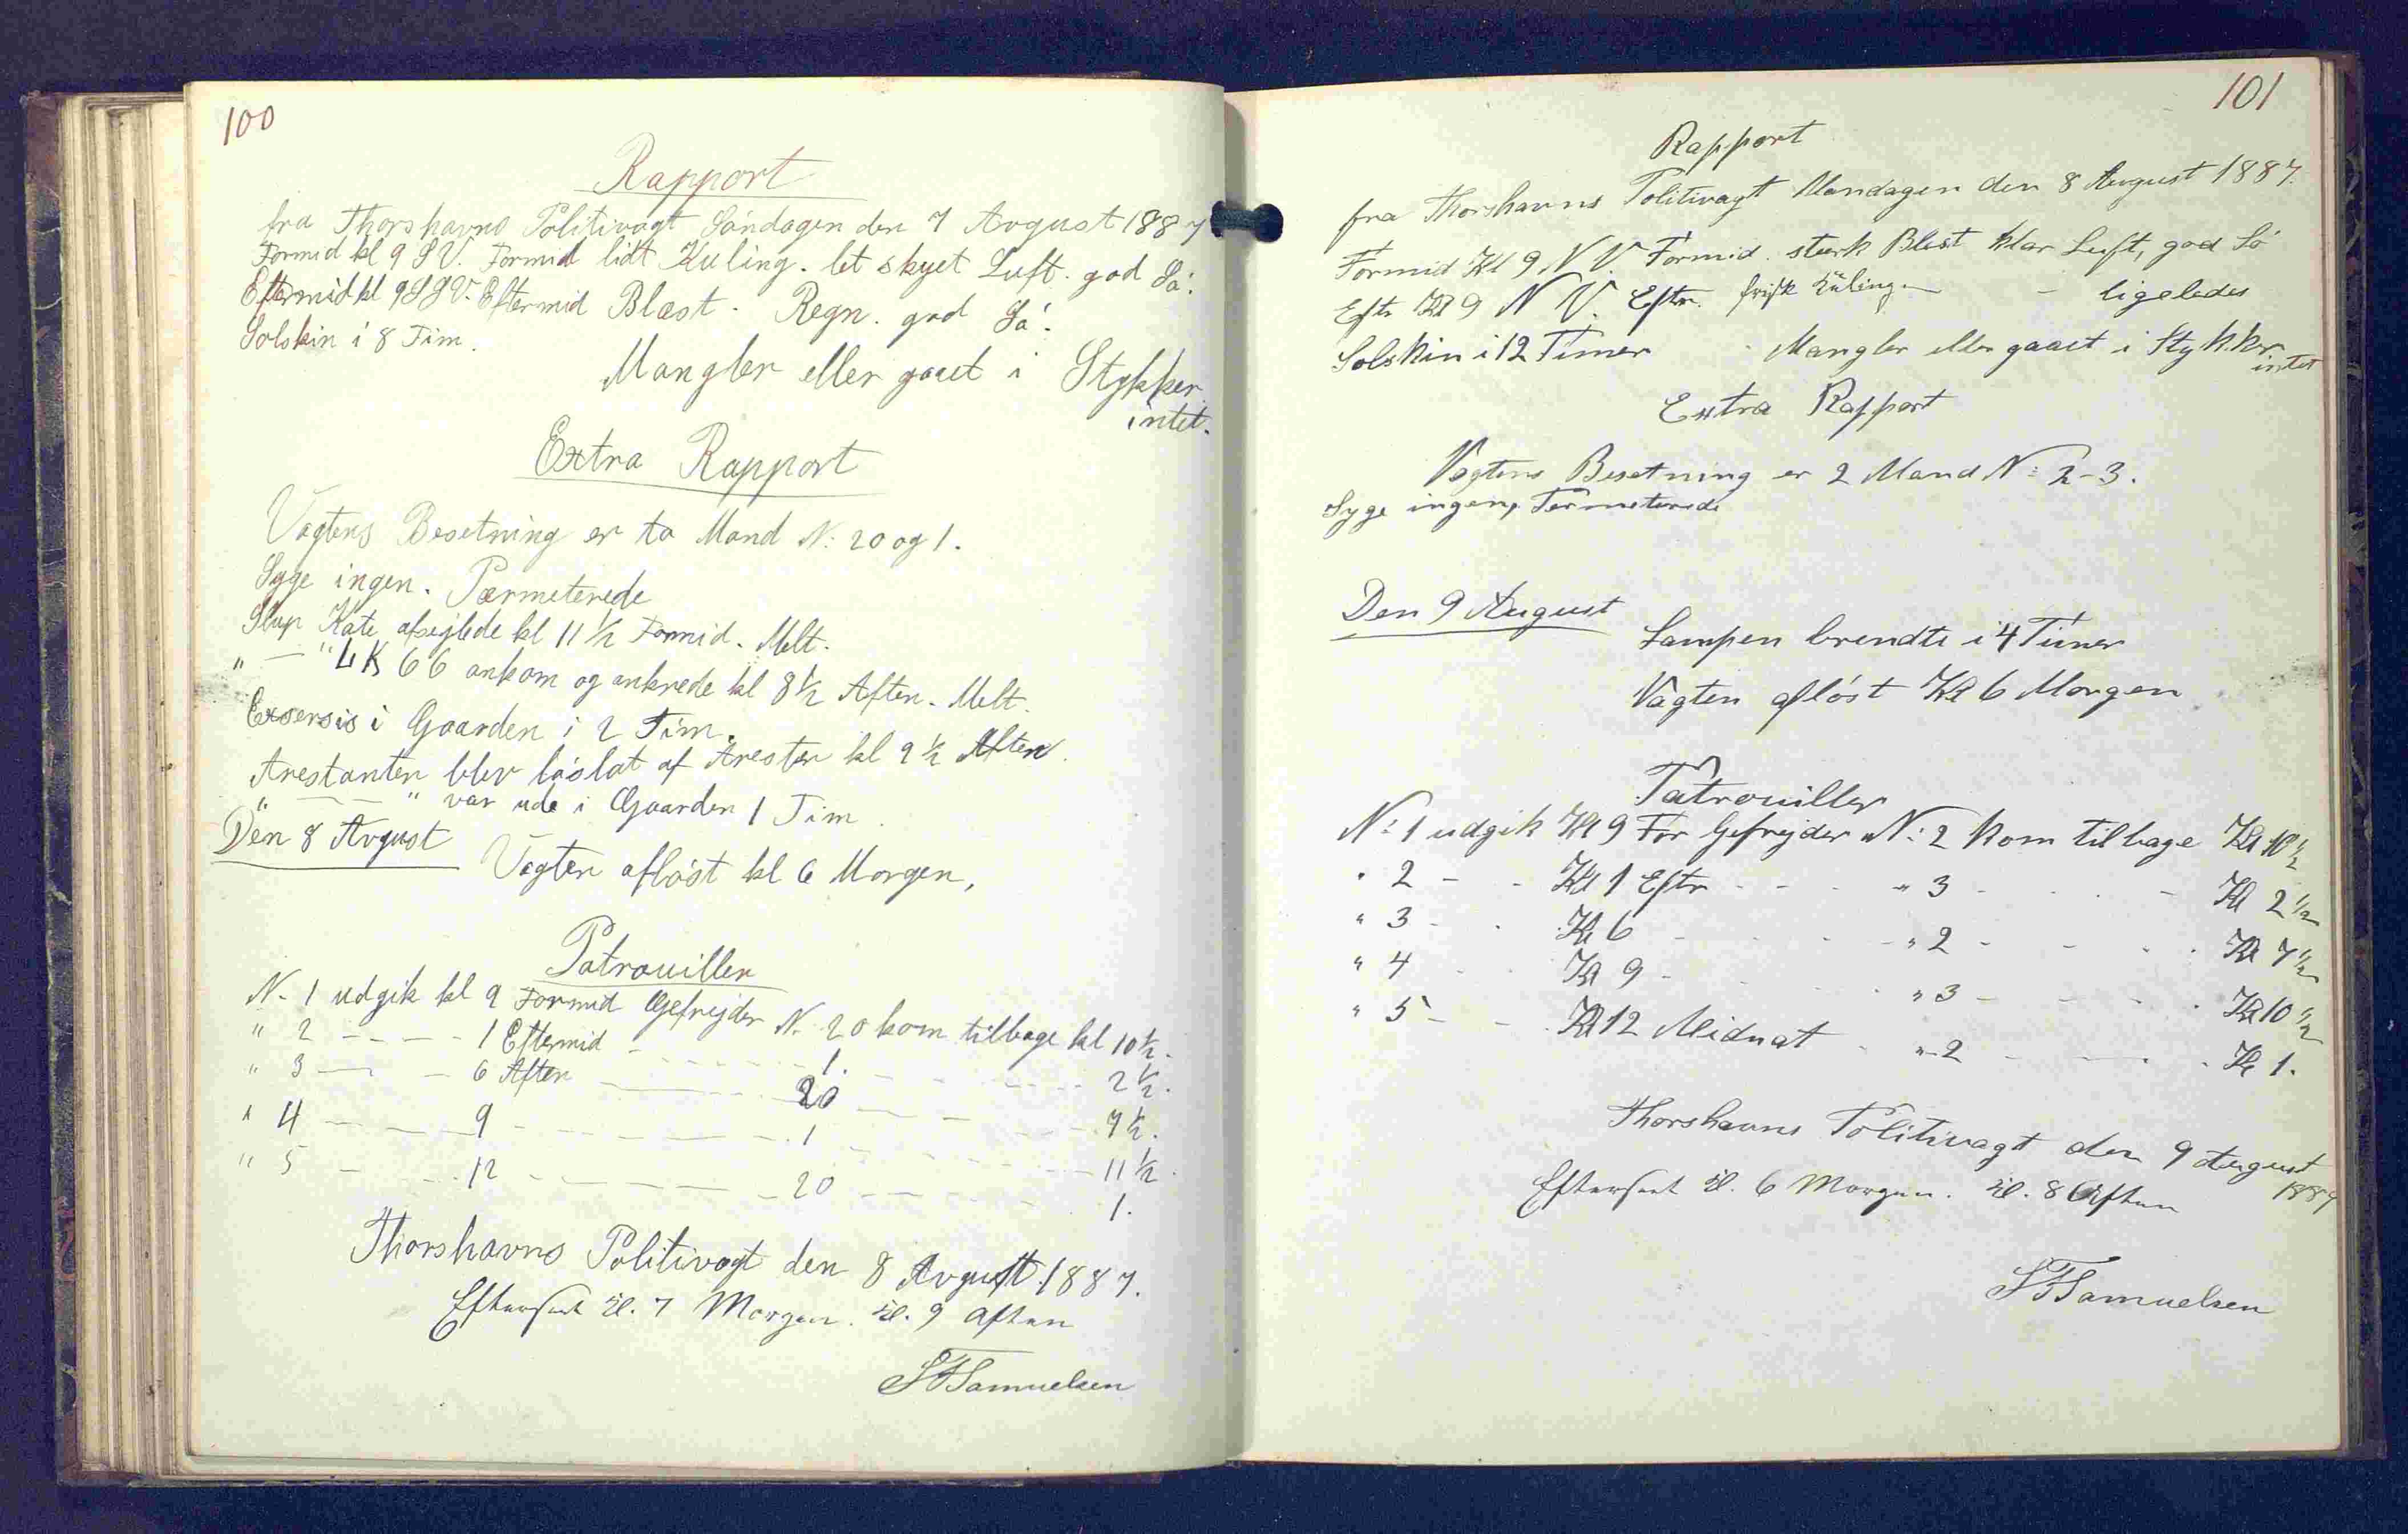 100
Rapport
fra Thorshavns Politivagt Söndagen den 7 Avgust 1887
Formid kl 9 S V. Formid lidt Kuling. let skyet Luft. god Sö.
Eftermid kl 9 S S V. Eftermid Blæst. Regn. god Sö.
Solskin i 8 Tim.
Mangler eller gaaet i Stykker
intet.
Extra Rapport
Vagtens Besetning er to Mand N: 20 og 1.
Syge ingen. Permeterede
Slup Kate afsejlede kl 11 1/2 Formid. Melt.
" — " LK 66 ankom og ankrede kl 8 1/2 Aften. Melt.
Exsersis i Gaarden i 2 Tim.
Arestanten blev löslat af Aresten kl 9 1/2 Aften.
" — " var ude i Gaarden 1 Tim.
Den 8 Avgust
Vagten aflöst kl 6 Morgen,
Patrouiller
N. 1 udgik kl 9 Formid Gefrejder N. 20 kom tilbage kl 10 1/2.
" 2 - - - - 1 Eftermid - - - - 1. - - - - 2 1/2.
" 3 — - — 6 Aften - - - - 20 - - - - 7 1/2.
" 4 - - - - 9 - - - - 1 - - - - 11 1/2.
" 5 - - - 12 - - - - 20 - - - - 1.
Thorshavns Politivagt den 8 Avgust 1887.
Efterseet kl. 7 Morgen. kl. 9 Aften
SFSamuelsen
101
Rapport
fra Thorshavns Politivagt Mandagen den 8 August 1887.
Formid Kl 9 N V. Formid. stærk Blæst klar Luft, god Sö
Eftr Kl 9 N V. Eftr. frisk Kuling - - ligeledes
Solskin i 12 Timer - Mangler eller gaaet i Stykker
intet
Extra Rapport
Vagtens Besetning er 2 Mand N: 2-3.
Syge ingen, Permeterede
Den 9 August
Lampen brendte i 4 Timer
Vagten aflöst Kl 6 Morgen
Patrouiller
N: 1 udgik Kl 9 For Gefrejder N: 2 kom tilbage Kl 10 1/2
" 2 - - Kl 1 Eftr - - - " 3 - - - Kl 2 1/2
" 3 - - Kl 6 - - - " 2 - - - Kl 7 1/2
" 4 - - Kl 9 - - - " 3 - - - Kl 10 1/2
" 5 - - Kl 12 Midnat - " 2 - - - Kl 1.
Thorshavns Politivagt den 9 August
1887
Efterseet kl. 6 Morgen. kl. 8 Aften
SFSamuelsen